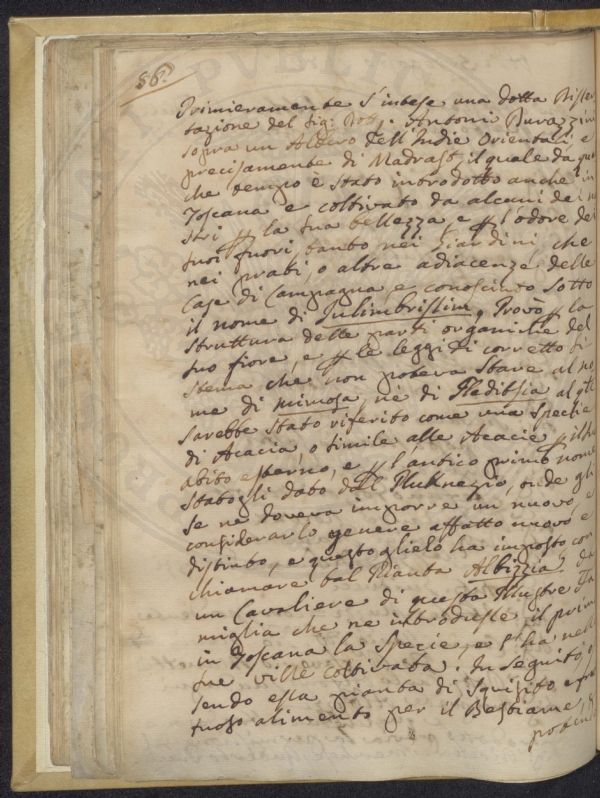 86.
Primieramente s'intese una dotta Disser
tazione del Sig: Dot. Antoni Durazzini
sopra un Albero dell'Indie Orientali, e
precisamente di Madrast, il quale da qual
che tempo è stato introdotto anche in
Toscana e coltivato da alcuni dei no
stri la sua bellezza e l'odore dei
suoi fiori, tanto nei Giardini, che
nei prati, o altre adiacenze delle
Case di Campagna, e conosciuto sotto
il nome di Julimbrissim, Provò la
struttura delle parti organiche del
suo fiore, e le leggi di corretto Si
stema che non poteva stare al no
me di mimosa, nè di Gleditsia al qle
sarebbe stato riferito come una specie
di Acacia, o simile alle Acacie il suo
abito esterno, e l'antico primo nome
statogli dato dal Pluknezio, onde gli
se ne doveva imporre un nuovo, e
considerarlo genere affatto nuovo, e
distinto, e questo glielo ha imposto, con
chiamare tal Pianta Albizzia da
un Cavaliere di questa Illustre Fa
miglia che ne introdusse il primo
in Toscana la specie, e l'ha nelle
sue ville coltivata. In seguito, es
sendo essa pianta di squisito, e frut
tuoso alimento per il Bestiame,
poten